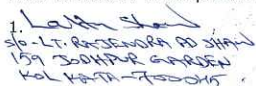 1. Lalita Shaw
S/O - LT. RAJENDRA PD SHAW
159 JODHPUR GARDEN
KOLKATA - 700045